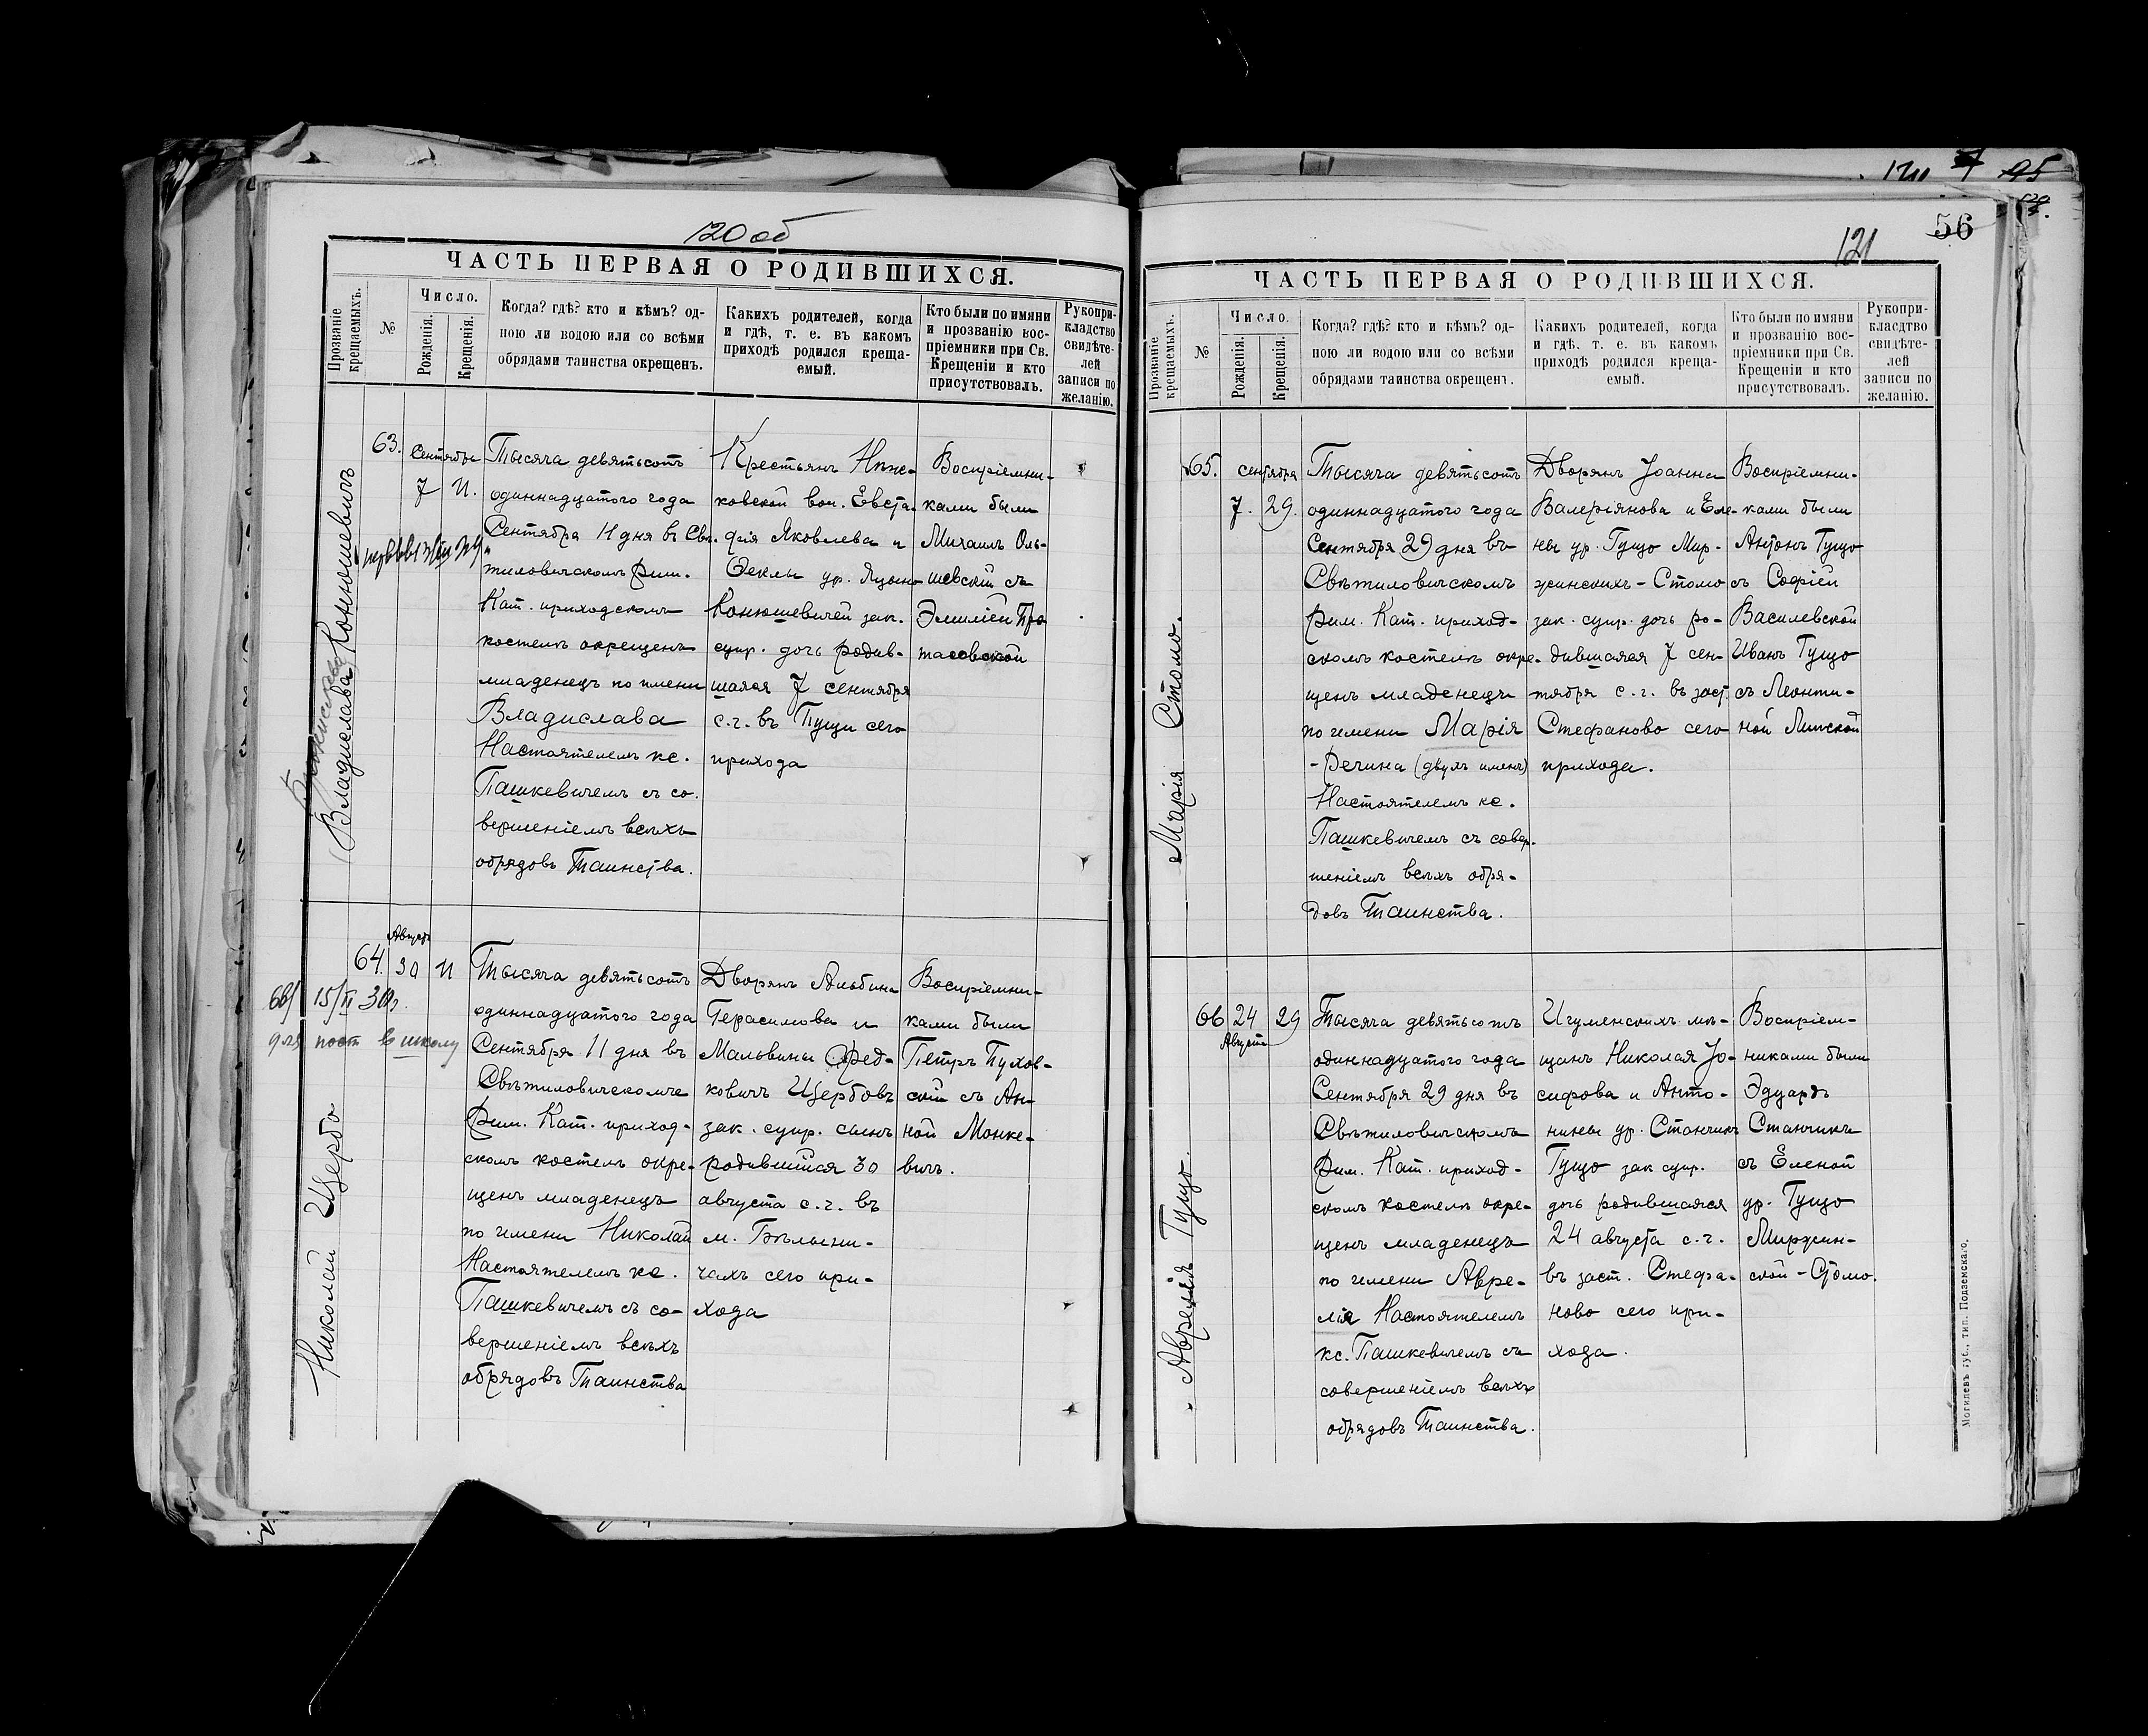 120 об
ЧАСТЬ ПЕРВАЯ О РОДИВШИХСЯ.
Прозваніе крещаемыхъ.
№
Число.
Рожденія.
Крещенія.
Когда? гдѣ? кто и кѣмъ? од-
ною ли водою или со всѣми
обрядами таинства окрещенъ.
Какихъ родителей, когда
и гдѣ, т. е. въ какомъ
приходѣ родился креща-
емый.
Кто были по имяни
и прозванію вос-
пріемники при Св.
Крещеніи и кто
присутствовалъ.
Рукопри-
кладство
свидѣте-
лей
записи по
желанію.
Владислава Конюшевичъ
63.
Сентябрь
7 11.
Тысяча девятьсотъ
одиннадцатого года
Сентября 11 дня въ Свѣ-
тиловичскомъ Рим.
Кат. приходскомъ
костелѣ окрещенъ
младенецъ по имени
Владислава
Настоятелемъ кс.
Пашкевичемъ съ со-
вершеніемъ всѣхъ
обрядовъ Таинства.
Крестьянъ
ковской вол. Евста-
фія Яковлева и
Θеклы ур.
Конюшевичей зак.
супр. дочь родив-
шаяся 7 сентября
с.г. въ Пущи сего
прихода
Воспріемни-
ками были
Михаилъ Оль-
шевскій съ
Эмиліей Про
тасовской
Николай Щербо
64.
Августъ
30 11
15/II 30г.
для пост в школу
Тысяча девятьсотъ
одиннадцатого года
Сентября 11 дня въ
Свѣтиловичскомъ
Рим. Кат. приход-
скомъ костелѣ окре-
щенъ младенецъ
по имени Николай
Настоятелемъ кс.
Пашкевичемъ съ со-
вершеніемъ всѣхъ
обрядовъ Таинства
Дворянъ Альбина
Герасимова и
Мальвины Фред-
ковичъ Щербовъ
зак. супр. сынъ
родившійся 30
августа с.г. въ
м. Бѣлыни-
чахъ сего при-
хода
Воспріемни-
ками были
Петръ Пухов-
скій съ Ан-
ной Монке-
вичъ.
56
121
ЧАСТЬ ПЕРВАЯ О РОДИВШИХСЯ.
Прозваніе крещаемыхъ.
№
Число.
Рожденія.
Крещенія.
Когда? гдѣ? кто и кѣмъ? од-
ною ли водою или со всѣми
обрядами таинства окрещенъ.
Какихъ родителей, когда
и гдѣ, т. е. въ какомъ
приходѣ родился креща-
емый.
Кто были по имяни
и прозванію вос-
пріемники при Св.
Крещеніи и кто
присутствовалъ.
Рукопри-
кладство
свидѣте-
лей
записи по
желанію.
Марія Стомо.
65.
сентября
7. 29.
Тысяча девятьсотъ
одиннадцатого года
Сентября 29 дня въ
Свѣтиловичскомъ
Рим. Кат. приход-
скомъ костелѣ окре-
щенъ младенецъ
по имени Марія
-Речина (двухъ именъ)
Настоятелемъ кс.
Пашкевичемъ съ совер-
шеніемъ всѣхъ обря-
довъ Таинства.
Дворянъ Іоанна
Валеріянова и Еле-
ны ур. Гуцо Мир-
жинскихъ-Стомо
зак. супр. дочь ро-
дившаяся 7 сен-
тября с.г. въ заст.
Стефаново сего
прихода.
Воспріемни-
ками были
Антонъ Гуцо
съ Софіей
Василевской
Иванъ Гуцо
съ Леонти-
ной Липской
Аврелія Гуцо.
66 24 29
Августа
Тысяча девятьсотъ
одиннадцатого года
Сентября 29 дня въ
Свѣтиловичскомъ
Рим. Кат. приход-
скомъ костелѣ окре-
щенъ младенецъ
по имени Авре-
лія Настоятелемъ
кс. Пашкевичемъ съ
совершеніемъ всѣхъ
обрядовъ Таинства.
Игуменскихъ мѣ-
щанъ Николая Іо-
сифова и Анто-
нины ур. Станчикъ
Гуцо зак супр.
дочь родившаяся
24 августа с.г.
въ заст. Стефа-
ново сего при-
хода.
Воспріем-
никами были
Эдуардъ
Станчикъ
съ Еленой
ур. Гуцо
Миржин-
ской-Стомо.
Могилевъ губ., тип. Подземскаго.